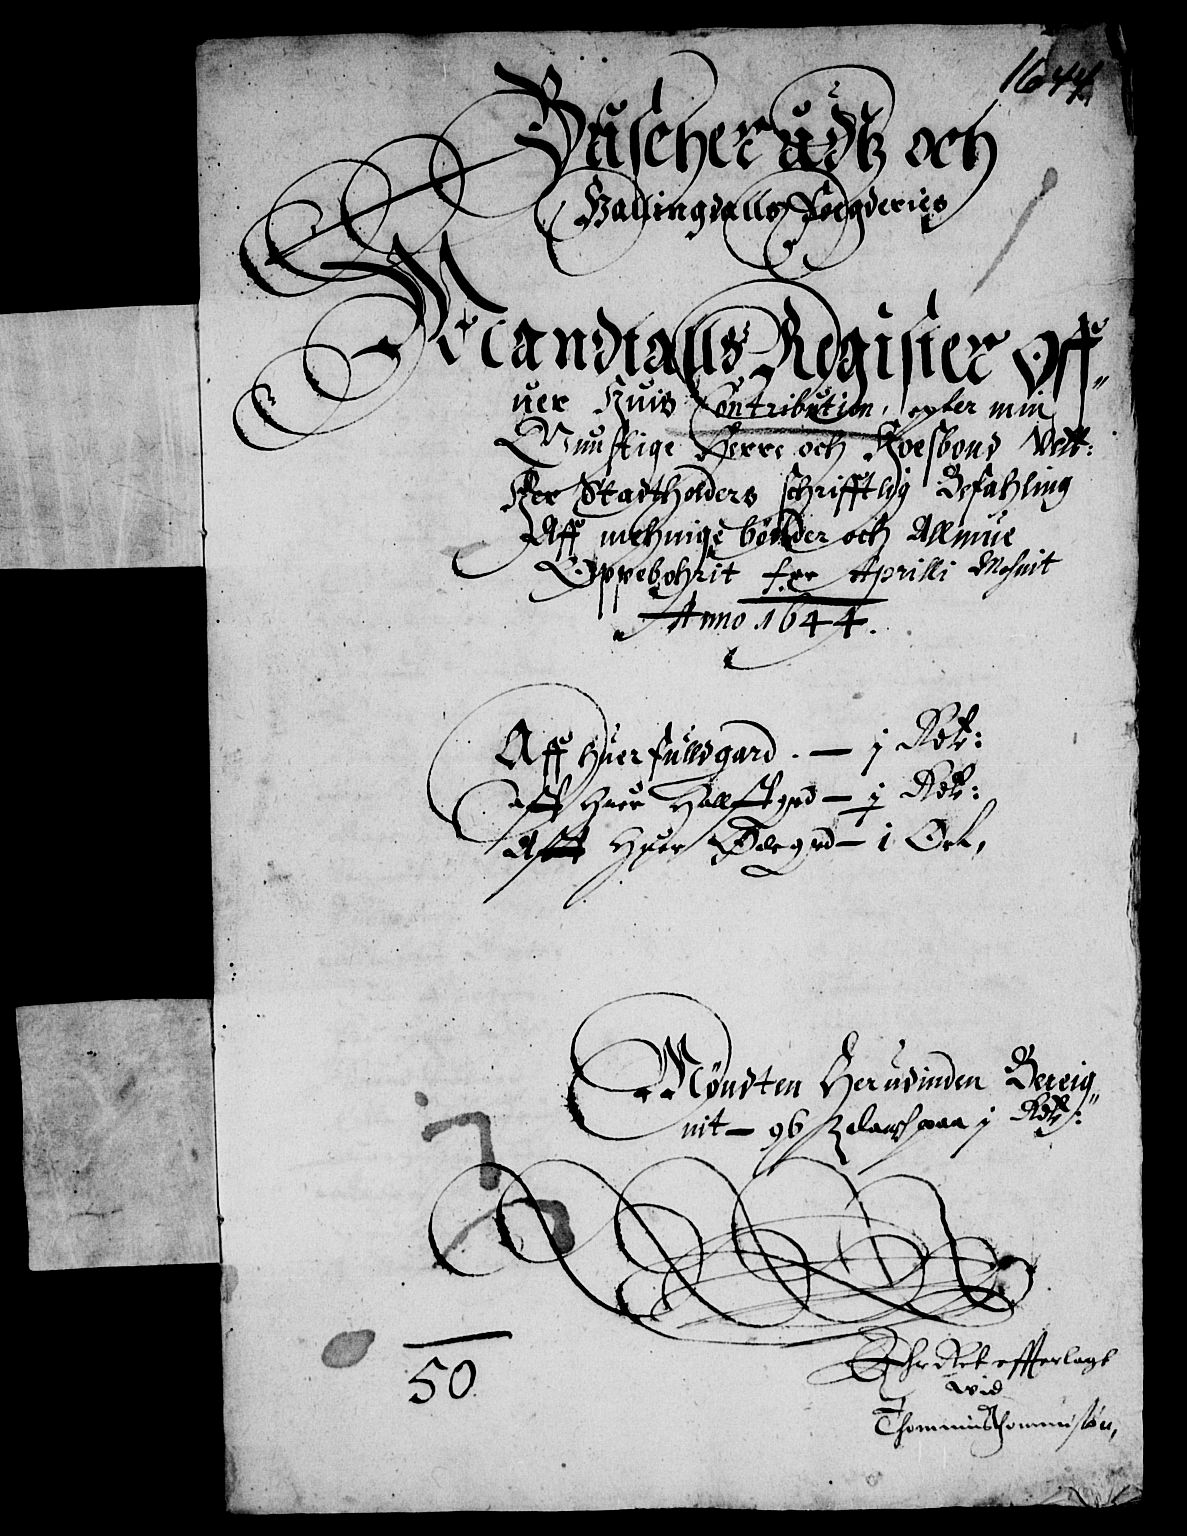 1644
Buscherudtz och
Hallingdalls Fougderies
Mandtalls Register Off„
uer Huis Contribution, epter min
Gunstige Herre och Hoesbond
Her Stadtholders schrifftlig Befahling
Aff menige bönder och Allmue
Oppebohrit for Aprilli Mohnit
Anno 1644.
Aff huer fuldgard . — j Rdr:
aff huer Hallfgrd — j Rdr:
Aff huer Ødegrd — i Ort,
Möndten Herudinden Bereig„
nit — 96 paa j Rdr:
50
Ehr Ret offuerlagt
wid
Thommis Thommisön,